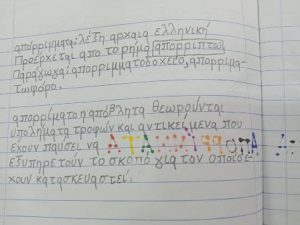 απορρίμματα: λέξη αρχαία ελληνική
Προέρχεται απο το ρήμα απορρίπτω,
Παράγωγα: απορριμματοδοχείο, απορριμμα-
τοφόρο.
απορρίματο η απόβλητα θεωρούνται
υπολήματα τροφών και αντικείμενα που
έχουν παύσει να
εξυπηρετούν το σκοπό για τον οποίο έ-
χουν κατασκευαστεί.